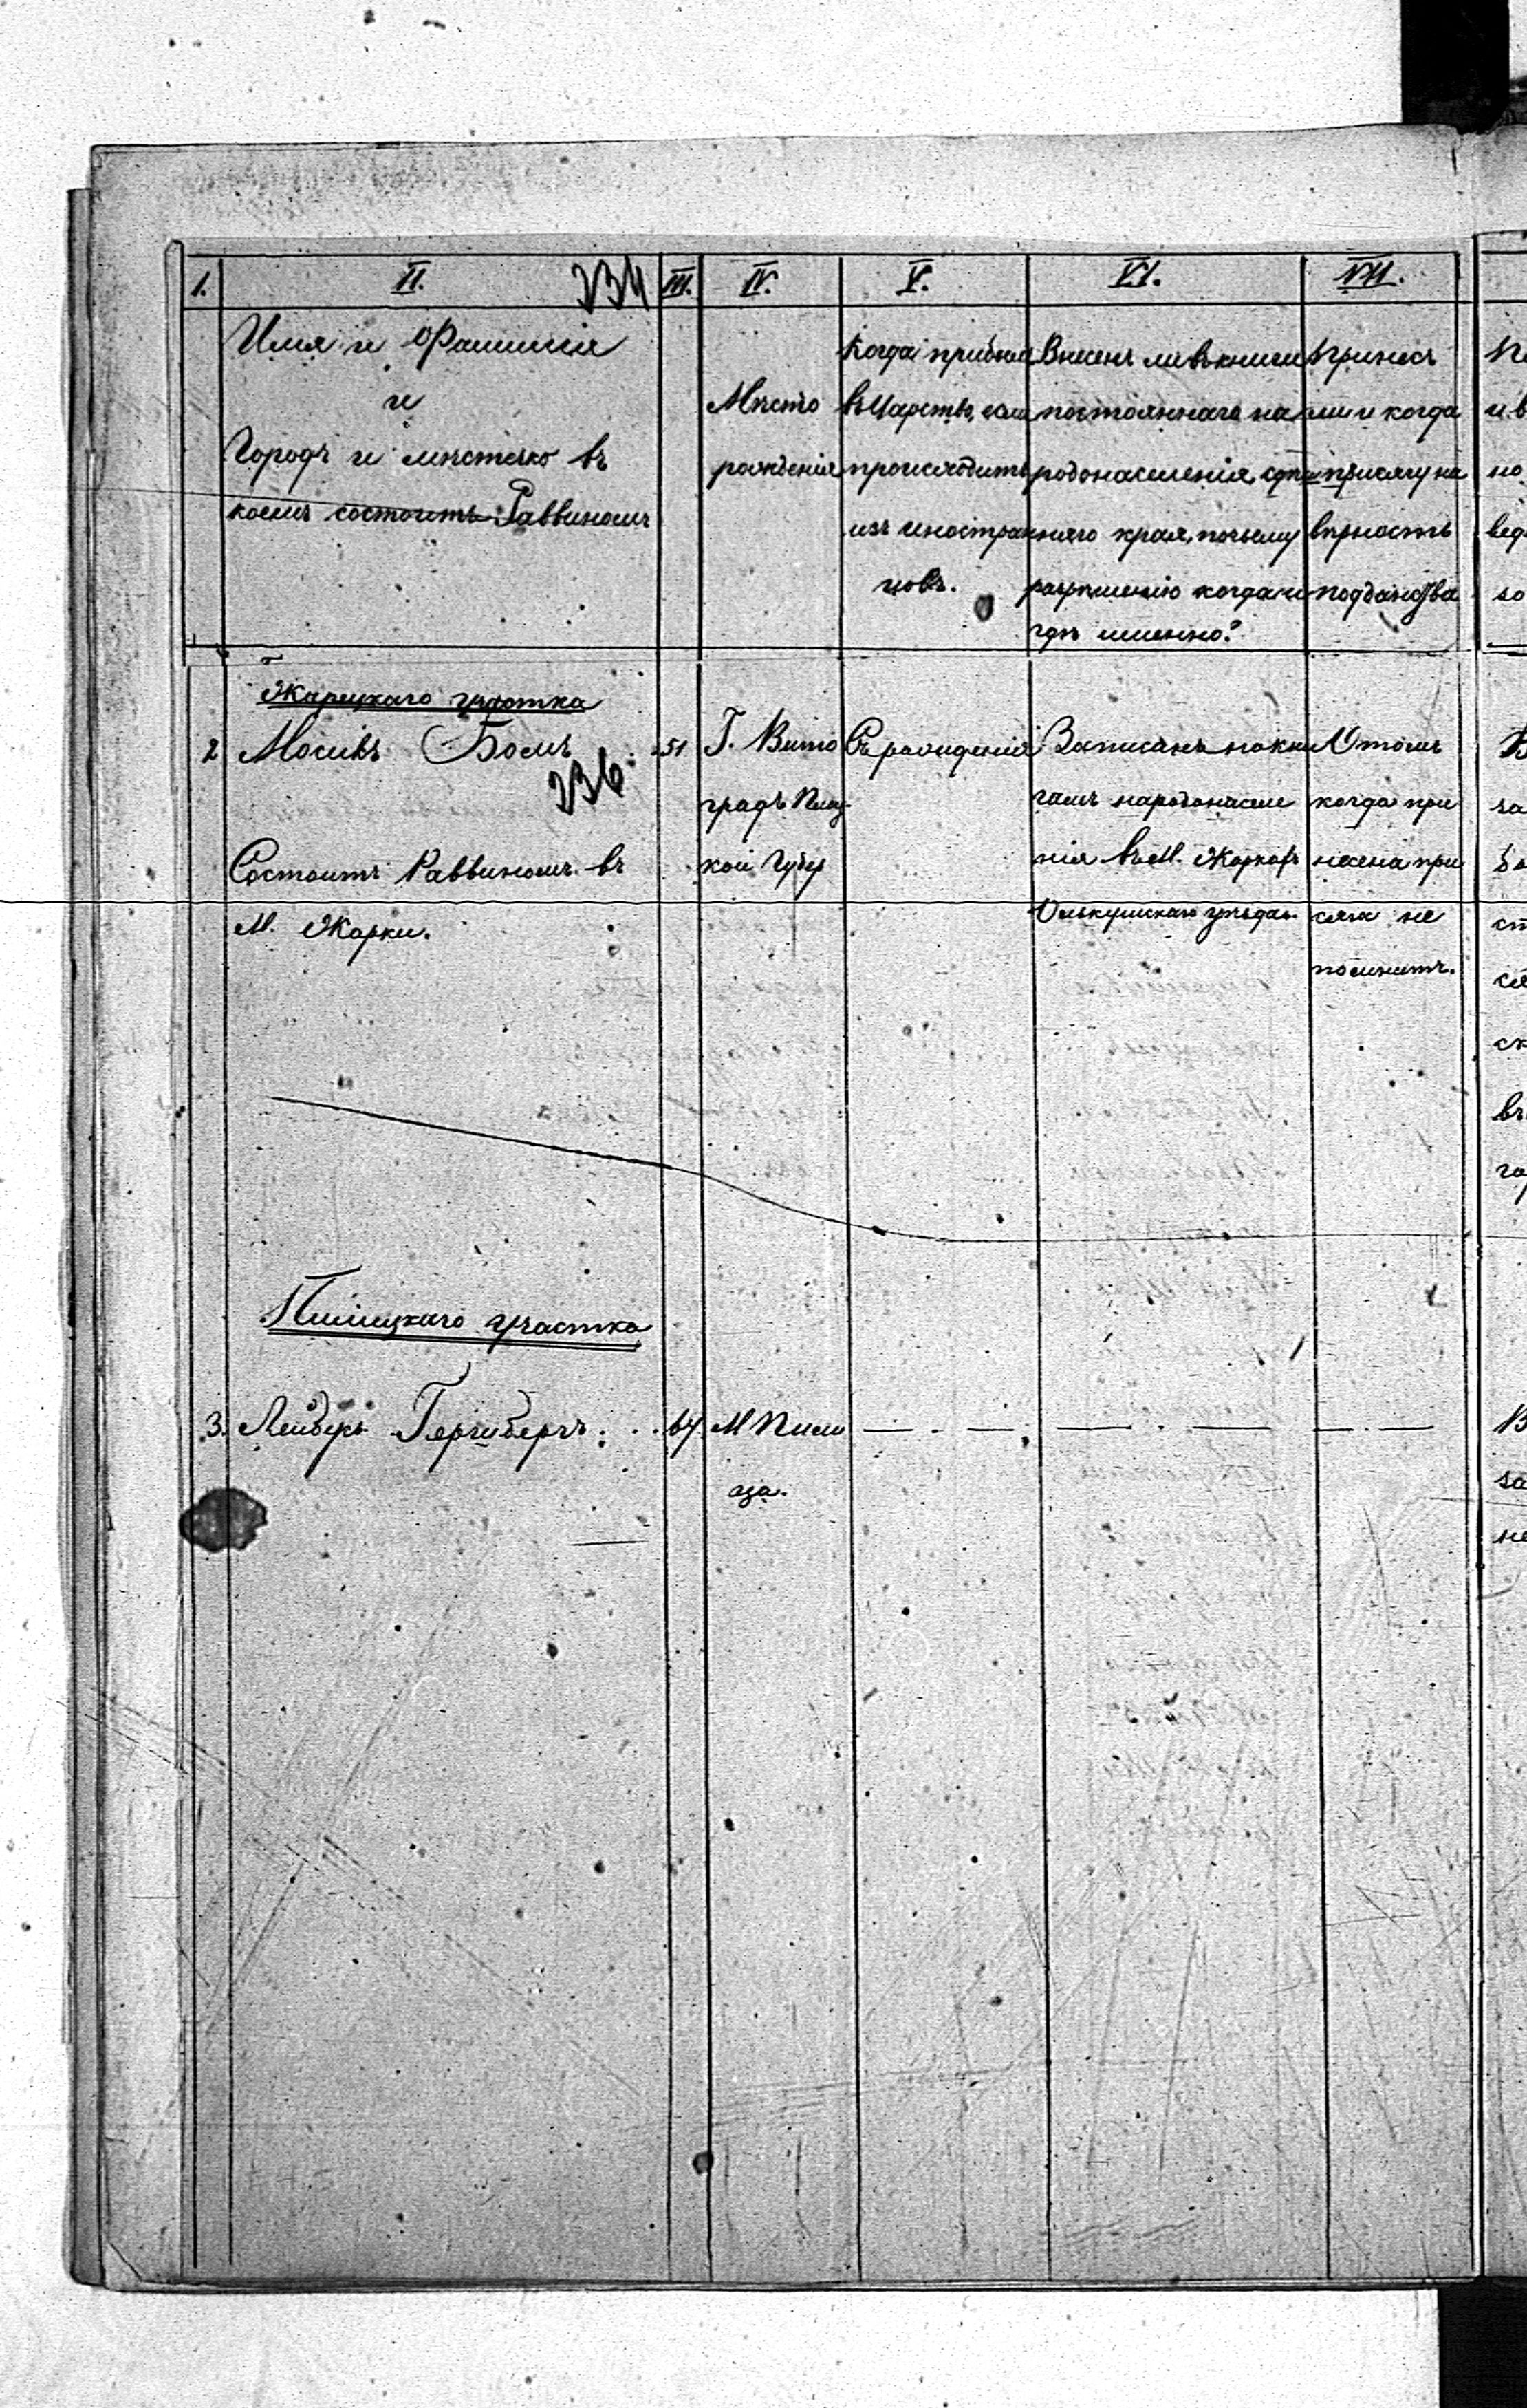 1. II. 234 III. IV. V. VI. VII.
Имя и Фамилія
и
Городъ и мѣстечко въ
коемъ состоитъ Раввиномъ
Мѣсто
рожденія
Когда прибылъ
въ Царство, если
происходитъ
изъ иностран
цовъ.
Внесенъ ли въ книги
постояннаго на
родонаселенія, гдѣ и
няго края, почьему
разрѣшенію когда и
гдѣ именно?
Принесъ
ли и когда
присягу на
вѣрность
подданства
Жарецкаго участка
2 Мосивъ Бомъ 51
236
Состоитъ Раввиномъ въ
М. Жарки.
Г. Выто
градъ Плоц
кой Губер
Съ рожденія
Записанъ по кни
гамъ народонаселе
нія въ М. Жаркахъ
Олькушскаго уѣзда.
О томъ
когда при
несена при
сяга не
помнитъ.
Пилицкаго участка
3. Лейберъ 64 М Пили
ца.